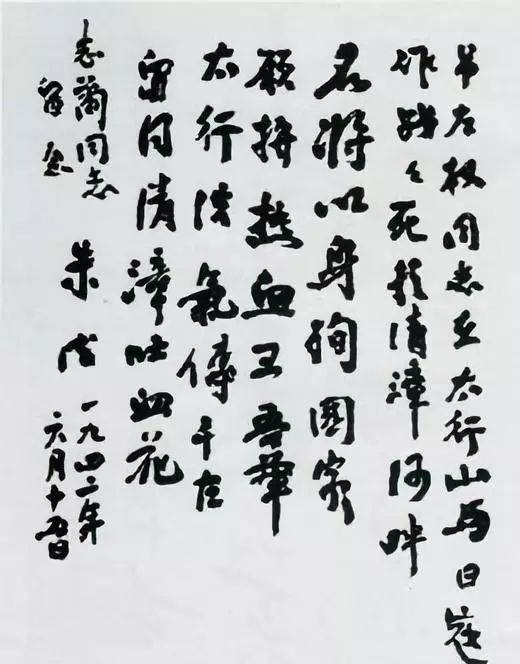 吊左权同志在太行山与日寇
作战々死於清漳河畔
名将以身殉國家
願拼热血卫吾華
太行浩氣傳千古
留得清漳吐血花
志蘭同志
留念
朱德
一九四二年
六月十五日